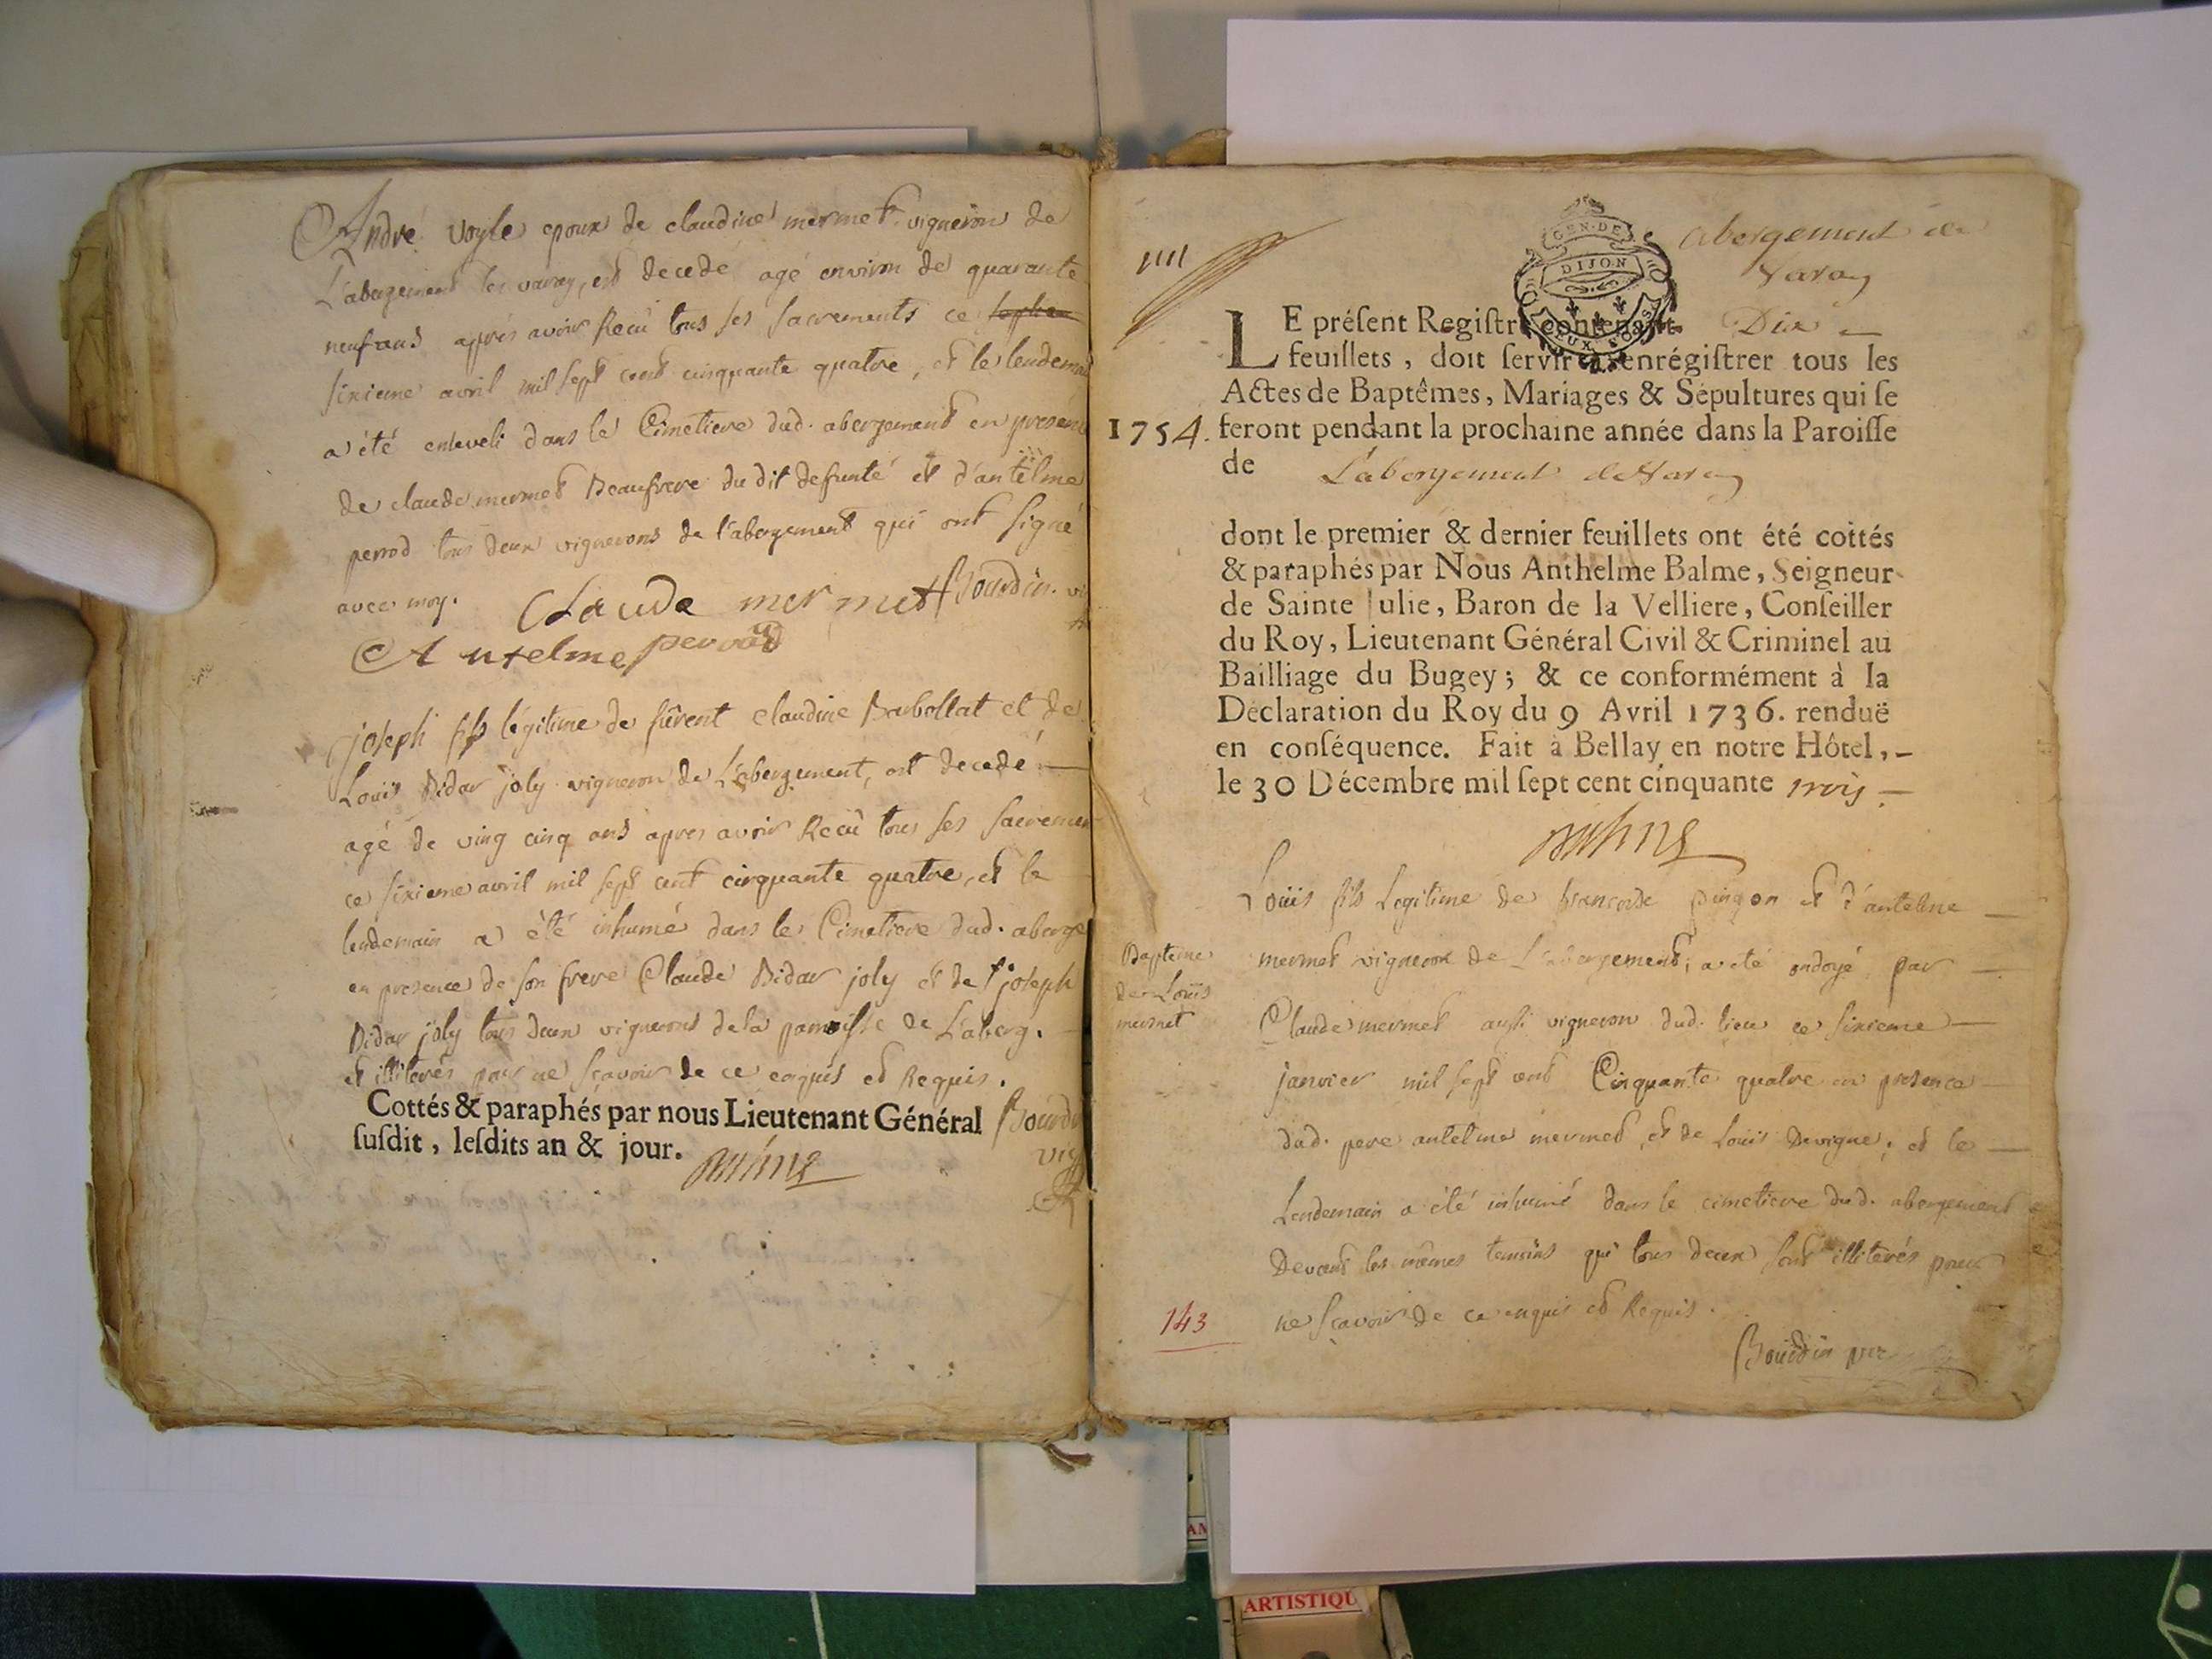 André voyle epoux de claudine mermet vigneron de
L'abergement les varay, est decedé agé environ de quarante
neuf ans après avoir Recû tous ses sacrements ce
sixieme avril mil sept cent cinquante quatre, et le lendemai
a été enseveli dans le Cimetiere dud. abergement en presenc
de claude mermet Beaufrere dudit defunté et d'antelme
perrod tous deux vignerons de l'abergement qui ont signé
avec moy. Claude mermet Bourdin. vi
Antelme perrod
joseph fils légitime de fûrent claudine Barbollat et de
Loüis Bidar joly vigneron de L'abergement, est decedé —
agé de ving cinq ans apres avoir Recû tous ses sacremen
ce sixieme avril mil sept cent cinquante quatre, et le
lendemain a été inhumé dans le Cimetiere dud. aberge
en presence de son frere Claude Bidar joly et de joseph
Bidar joly tous deux vignerons de la paroisse de L'aberg.
et illiterés pour ne sçavoir de ce enquis et Requis.
Cottés & paraphés par nous Lieutenant Général Bourdi
susdit, lesdits an & jour. vig
Balme
Abergement de
Varay
GEN·DE
DIJON
DEUX SOLS
LE présent Registre contenant Dix —
feuillets, doit servir à enrégistrer tous les
Actes de Baptêmes, Mariages & Sépultures qui se
1754. feront pendant la prochaine année dans la Paroisse
de L'abergement de Varay
dont le premier & dernier feuillets ont été cottés
& paraphés par Nous Anthelme Balme, Seigneur
de Sainte Julie, Baron de la Velliere, Conseiller
du Roy, Lieutenant Général Civil & Criminel au
Bailliage du Bugey; & ce conformément à la
Déclaration du Roy du 9 Avril 1736. renduë
en conséquence. Fait à Bellay en notre Hôtel, –
le 30 Décembre mil sept cent cinquante trois —
Balme
Loüis fils Legitime de francoise pingon et d'antelme —
Bapteme
de Loüis
mermet
mermet vigneron de L'abergement, a eté ondoyé par —
Claude mermet aussi vigneron dud. lieu ce sixieme —
janvier mil sept cent Cinquante quatre en presence
dud. pere antelme mermet, et de Louis Devigne; et le —
Lendemain a été inhumé dans le cimetiere dud. abergement
Devant les mêmes temoins qui tous deux sont illiterés pour
ne sçavoir de ce enquis et Requis.
143
Bourdin
ARTISTIQU